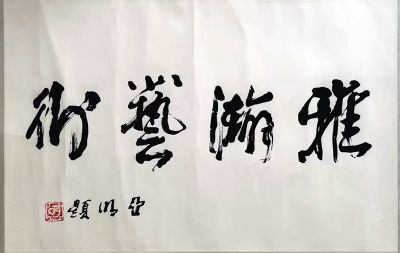 雅瀚藝術
亞明題